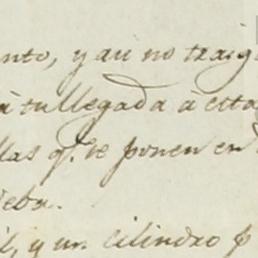 nto, y aú no traiga
à tu llegada à esta
llas q.e se ponen en
eba.
il, y un cilindro p